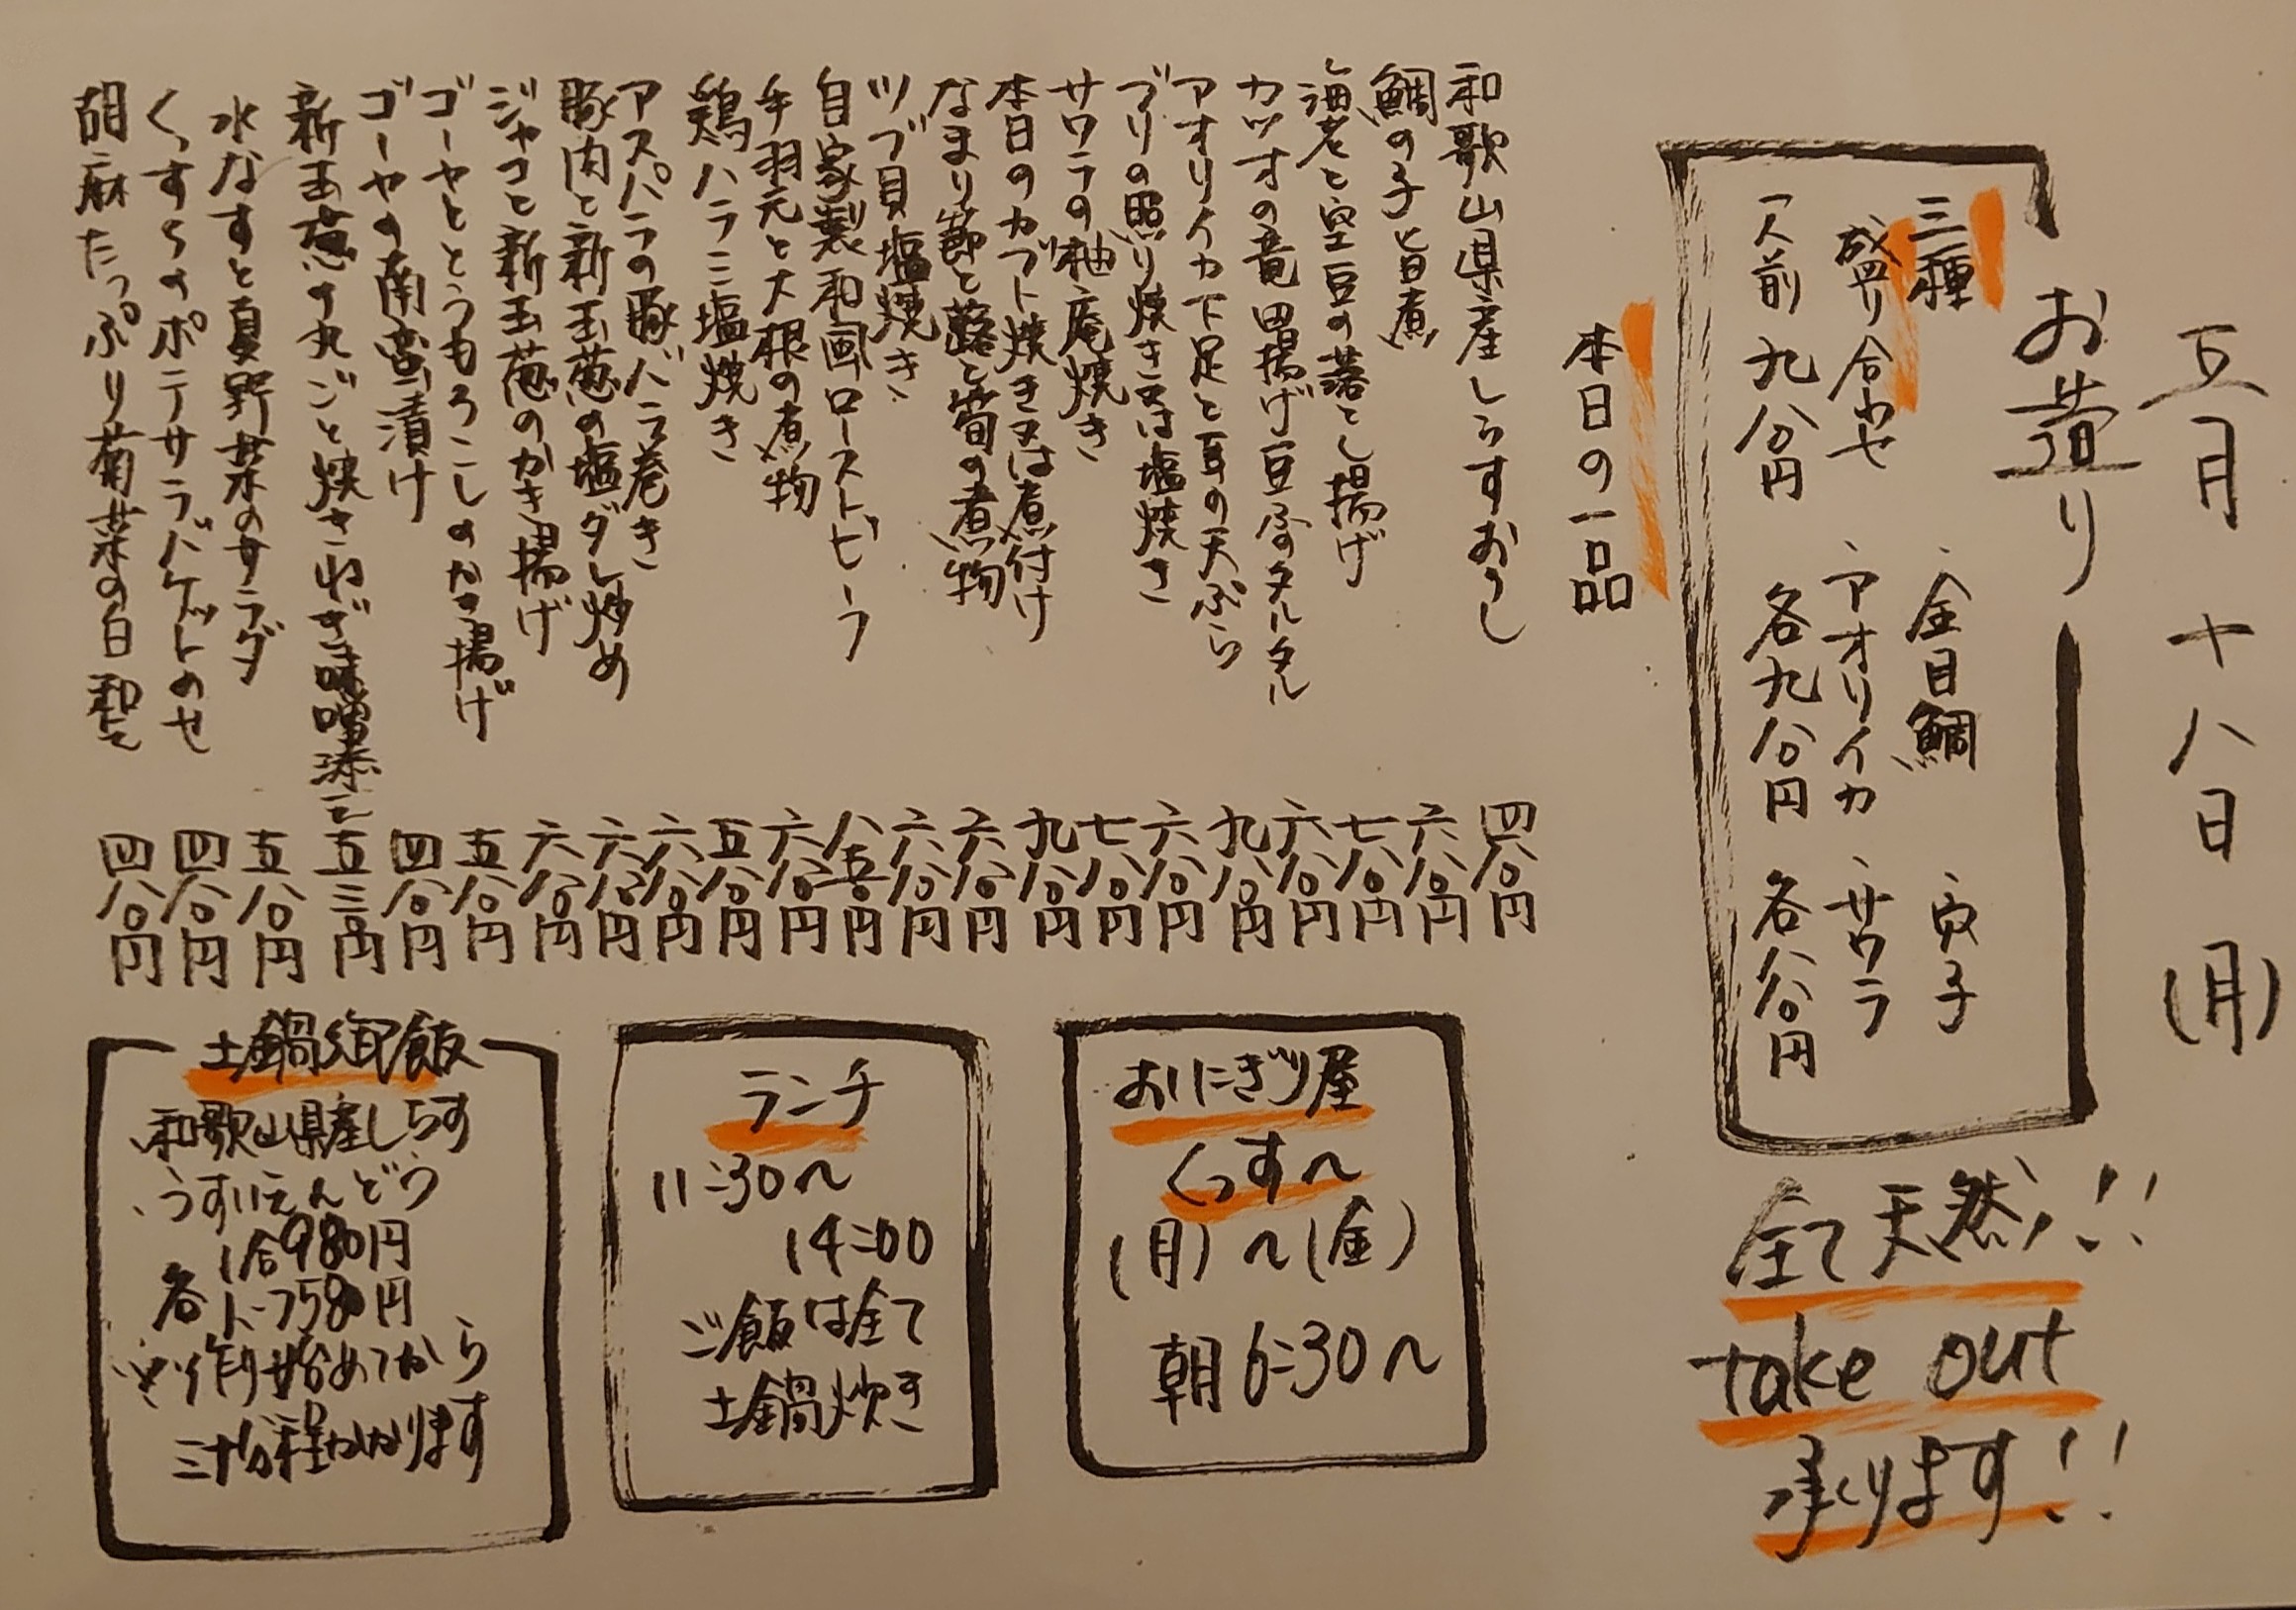 五月十八日(月)
お造り
三種
盛り合わせ
一人前 九八〇円
・金目鯛
・アオリイカ
各九八〇円
・穴子
・サワラ
各八八〇円
全て天然!!
take out
承ります!!
本日の一品
和歌山県産しらすおろし 四八〇円
鯛の子旨煮 六八〇円
海老と空豆の落とし揚げ 七八〇円
カツオの竜田揚げ豆ふのタルタル 六八〇円
アオリイカ下足と耳の天ぷら 九八〇円
ブリの照り焼き又は塩焼き 六八〇円
サワラの柚庵焼き 七八〇円
本日のカブト焼き又は煮付け 九八〇円
なまり節と蕗と筍の煮物 六八〇円
ツブ貝塩焼き 六八〇円
自家製和風ローストビーフ 八五〇円
手羽元と大根の煮物 六八〇円
鶏ハラミ塩焼き 五八〇円
アスパラの豚バラ巻き 六八〇円
豚肉と新玉葱の塩ダレ炒め 六八〇円
ジャコと新玉葱のかき揚げ 六八〇円
ゴーヤととうもろこしのかき揚げ 五八〇円
ゴーヤの南蛮漬け 四八〇円
新玉葱の丸ごと焼きねぎ味噌添え 五三〇円
水なすと夏野菜のサラダ 五八〇円
くっすらのポテサラバケットのせ 四八〇円
胡麻たっぷり菊菜の白和え 四八〇円
おにぎり屋
くっす〜
(月)〜(金)
朝6:30〜
ランチ
11:30〜
14:00
ご飯は全て
土鍋炊き
土鍋御飯
・和歌山県産しらす
・うすいえんどう
各 1合980円
ハーフ580円
※作り始めてから
三十分程かかります